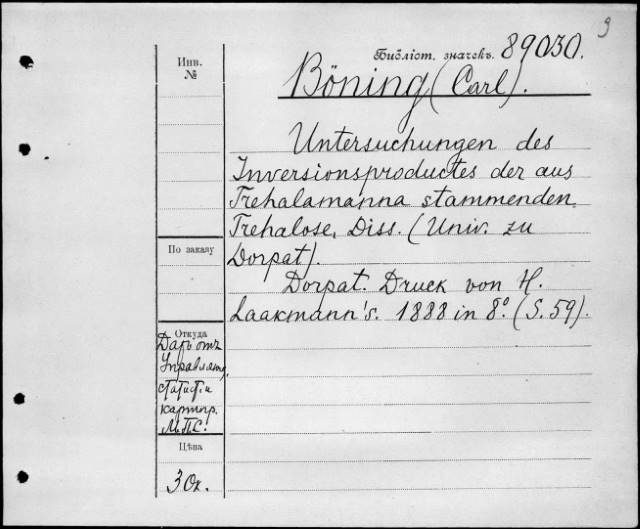 9
Инв.
№
Библіот. значекъ. 89030.
Böning (Carl).
Untersuchungen des
Inversionsproductes der aus
Trehalamanna stammenden
Trehalose, Diss. (Univ. zu
Dorpat).
Dorpat. Druck von H.
Laakmann's. 1888 in 8° (S. 59).
По заказу
Откуда
Даръ отъ
статист. и
картогр.
М.П.С.
Цѣна
30к.